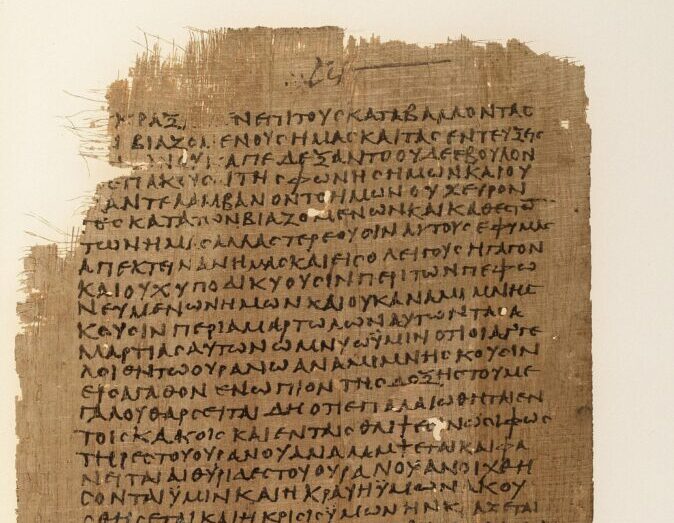 ΚΡΑΞ ΝΕΠΙΤΟΥΣΚΑΤΑΒΑΛΛΟΝΤΑΣ
ΒΙΑΖΟΜΕΝΟΥΣΗΜΑΣΚΑΙΤΑΣΕΝΤΕΥΞΕΙΣ
ΟΥΚΑΠΕΔΕΞΑΝΤΟΟΥΔΕΕΒΟΥΛΟΝ
ΕΠΑΚΟΥΣΑΙΤΗΣΦΩΝΗΣΗΜΩΝΚΑΙΟΥ
ΑΝΤΕΛΑΜΒΑΝΟΝΤΟΗΜΩΝΟΥΧΕΥΡΟΝ
ΤΕΣΚΑΤΑΤΩΝΒΙΑΖΟΜΕΝΩΝΚΑΙΚΑΘΕΣΤΟ
ΤΩΝΗΜΑΣΑΛΛΑΣΤΕΡΕΟΥΣΙΝΑΥΤΟΥΣΕΦΥΜΑΣ
ΑΠΕΚΤΕΙΝΑΝΗΜΑΣΚΑΙΕΙΣΟΛΕΙΓΟΥΣΗΓΑΓΟΝ
ΚΑΙΟΥΧΥΠΟΔΙΚΥΟΥΣΙΝΠΕΡΙΤΩΝΠΕΦΩ
ΝΕΥΜΕΝΩΝΗΜΩΝΚΑΙΟΥΚΑΝΑΜΙΜΝΗΣ
ΚΟΥΣΙΝΠΕΡΙΑΜΑΡΤΩΛΩΝΑΥΤΩΝΤΑΣΑ
ΜΑΡΤΙΑΣΑΥΤΩΝΩΜΝΥΩΫΜΙΝΟΤΙΟΙΑΓΓΕ
ΛΟΙΕΝΤΩΟΥΡΑΝΩΑΝΑΜΙΜΝΗΣΚΟΥΣΙΝ
ΕΙΣΑΓΑΘΟΝΕΝΩΠΙΟΝΤΗΣΔΟΞΗΣΤΟΥΜΕ
ΓΑΛΟΥΘΑΡΣΕΙΤΑΙΔΗΟΤΙΕΠΑΛΑΙΩΘΗΤΑΙΕΝ
ΤΟΙΣΚΑΚΟΙΣΚΑΙΕΝΤΑΙΣΘΛΙΨΕΣΙΝΩΣΙΦΩΣ
ΤΗΡΕΣΤΟΥΟΥΡΑΝΟΥΑΝΑΛΑΜΨΕΤΑΙΚΑΙΦΑ
ΝΕΙΤΑΙΑΙΘΥΡΙΔΕΣΤΟΥΟΥΡΑΝΟΥΑΝΟΙΧΘΗ
ΣΟΝΤΑΙΫΜΙΝΚΑΙΗΚΡΑΥΓΗΫΜΩΝΑΚΟΥ
ΣΘΗΣΕΤΑΙΚΑΙΗΚΡΙΣΙΣΫΜΩΝΗΝΚΡΑΖΕΤΑΙ